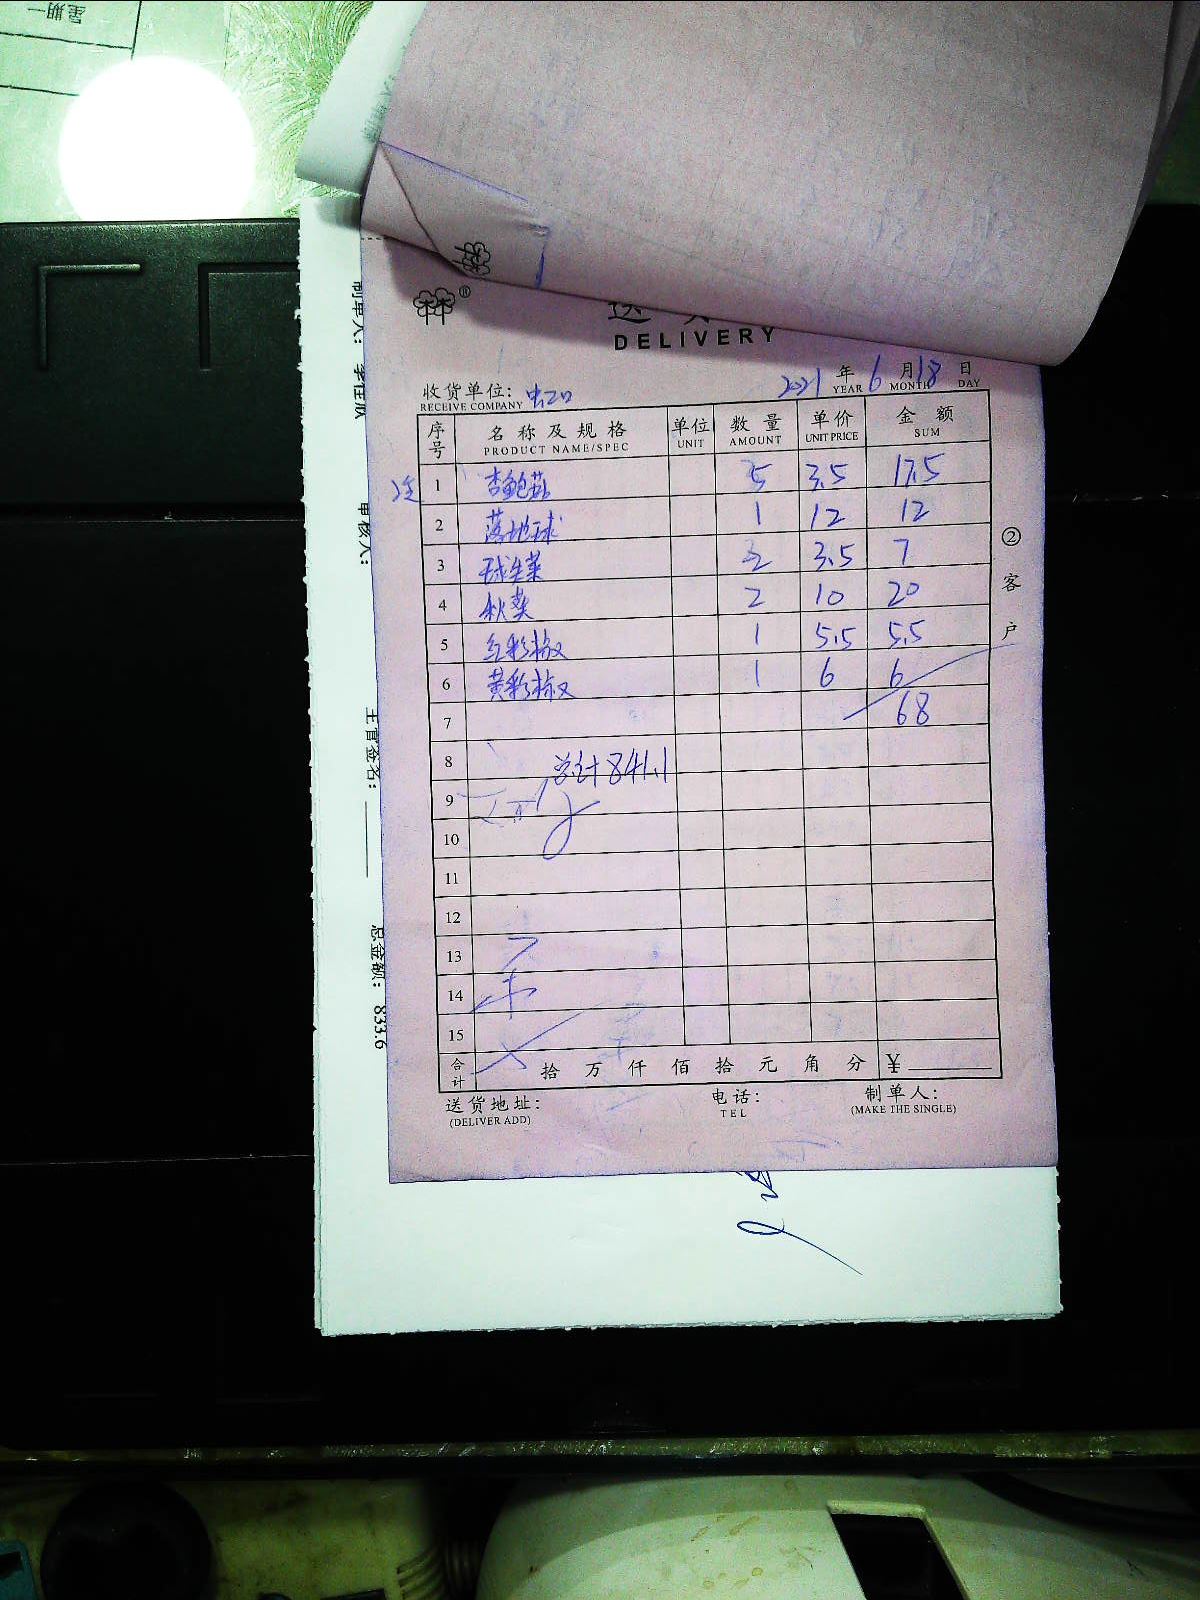 星期一
®
DELIVERY
2021 年 6 月 18 日
YEAR MONTH DAY
收货单位: 虹口
RECEIVE COMPANY
序号 名称及规格 单位 数量 单价 金额
PRODUCT NAME/SPEC UNIT AMOUNT UNIT PRICE SUM
1 杏鲍菇 5 3.5 17.5
2 落地球 1 12 12
3 球生菜 2 3.5 7
4 秋葵 2 10 20
5 红彩椒 1 5.5 5.5
6 黄彩椒 1 6 6
7 68
8 总计841.1
9
10
11
12
13
14
15
合计 拾 万 仟 佰 拾 元 角 分 ¥
送货地址: 电话: 制单人:
(DELIVER ADD) TEL (MAKE THE SINGLE)
②客户
制单人:
审核人:
主管签名:
总金额: 833.6